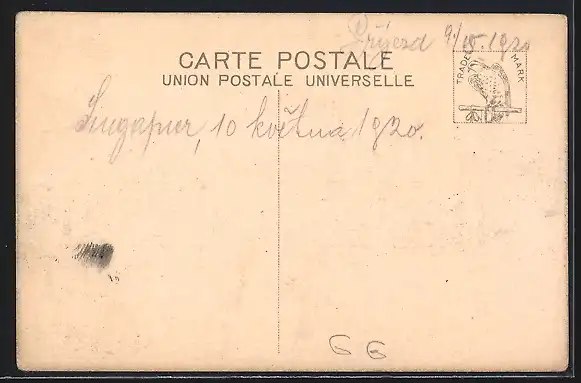 Příjezd 9./V. 1920
CARTE POSTALE
UNION POSTALE UNIVERSELLE
TRADE MARK
Singapur, 10 května 1920.
66